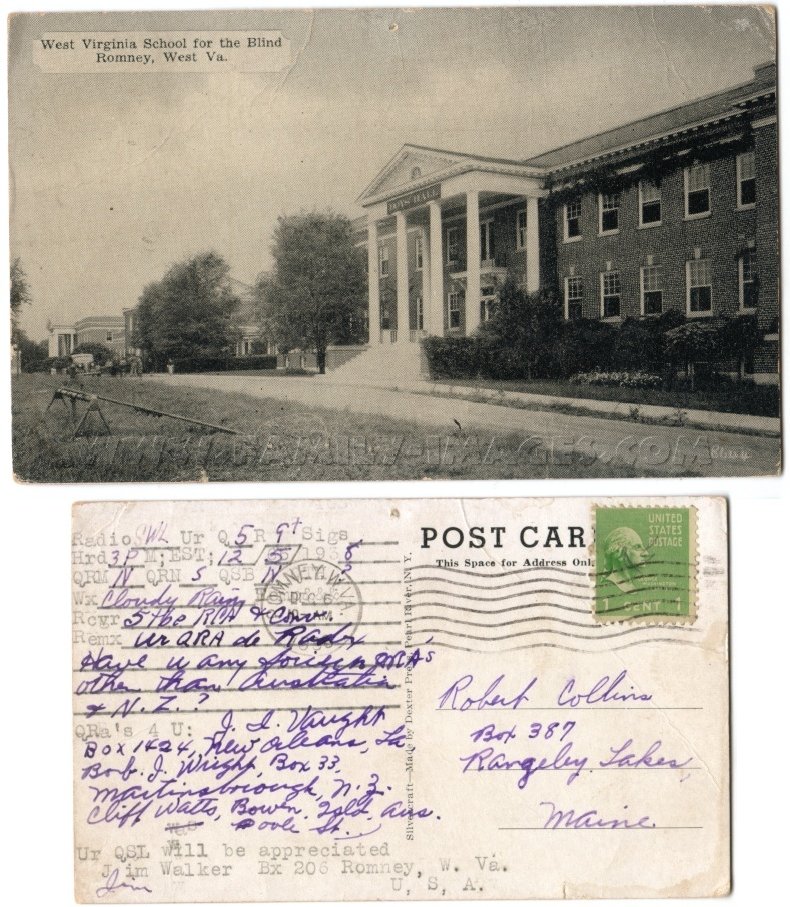 West Virginia School for the Blind
Romney, West Va.
BOYS HALL
WWW.FAMILY-IMAGES.COM
Radio SWL Ur Q 5 R 9+ Sigs
Hrd 3P M; EST; 12/5/1938
QRM N QRN S QSB N ?
Wx Cloudy Rain
Rcvr 5 tbe RCA & Conv.
Remx Ur QRA de Radex
Have u any foreign QRA's
other than Australia
& N.Z.?
QRa's 4 U: J. I. Vaught
Box 1424, New Orleans, La
Bob. J. Wright, Box 33,
Martinsborough, N.Z.
Cliff Watts, Bowen. Qsld, Aus.
Poole St.
Ur QSL will be appreciated
Jim Walker Bx 206 Romney, W. Va.
Jim U, S, A.
ROMNEY, W.VA.
DEC 6
AM
POST CAR
This Space for Address Onl
UNITED
STATES
POSTAGE
1 CENT 1
Silvercraft—Made by Dexter Press, Pearl River, N. Y.
Robert Collins
Box 387
Rangeley Lakes,
Maine.